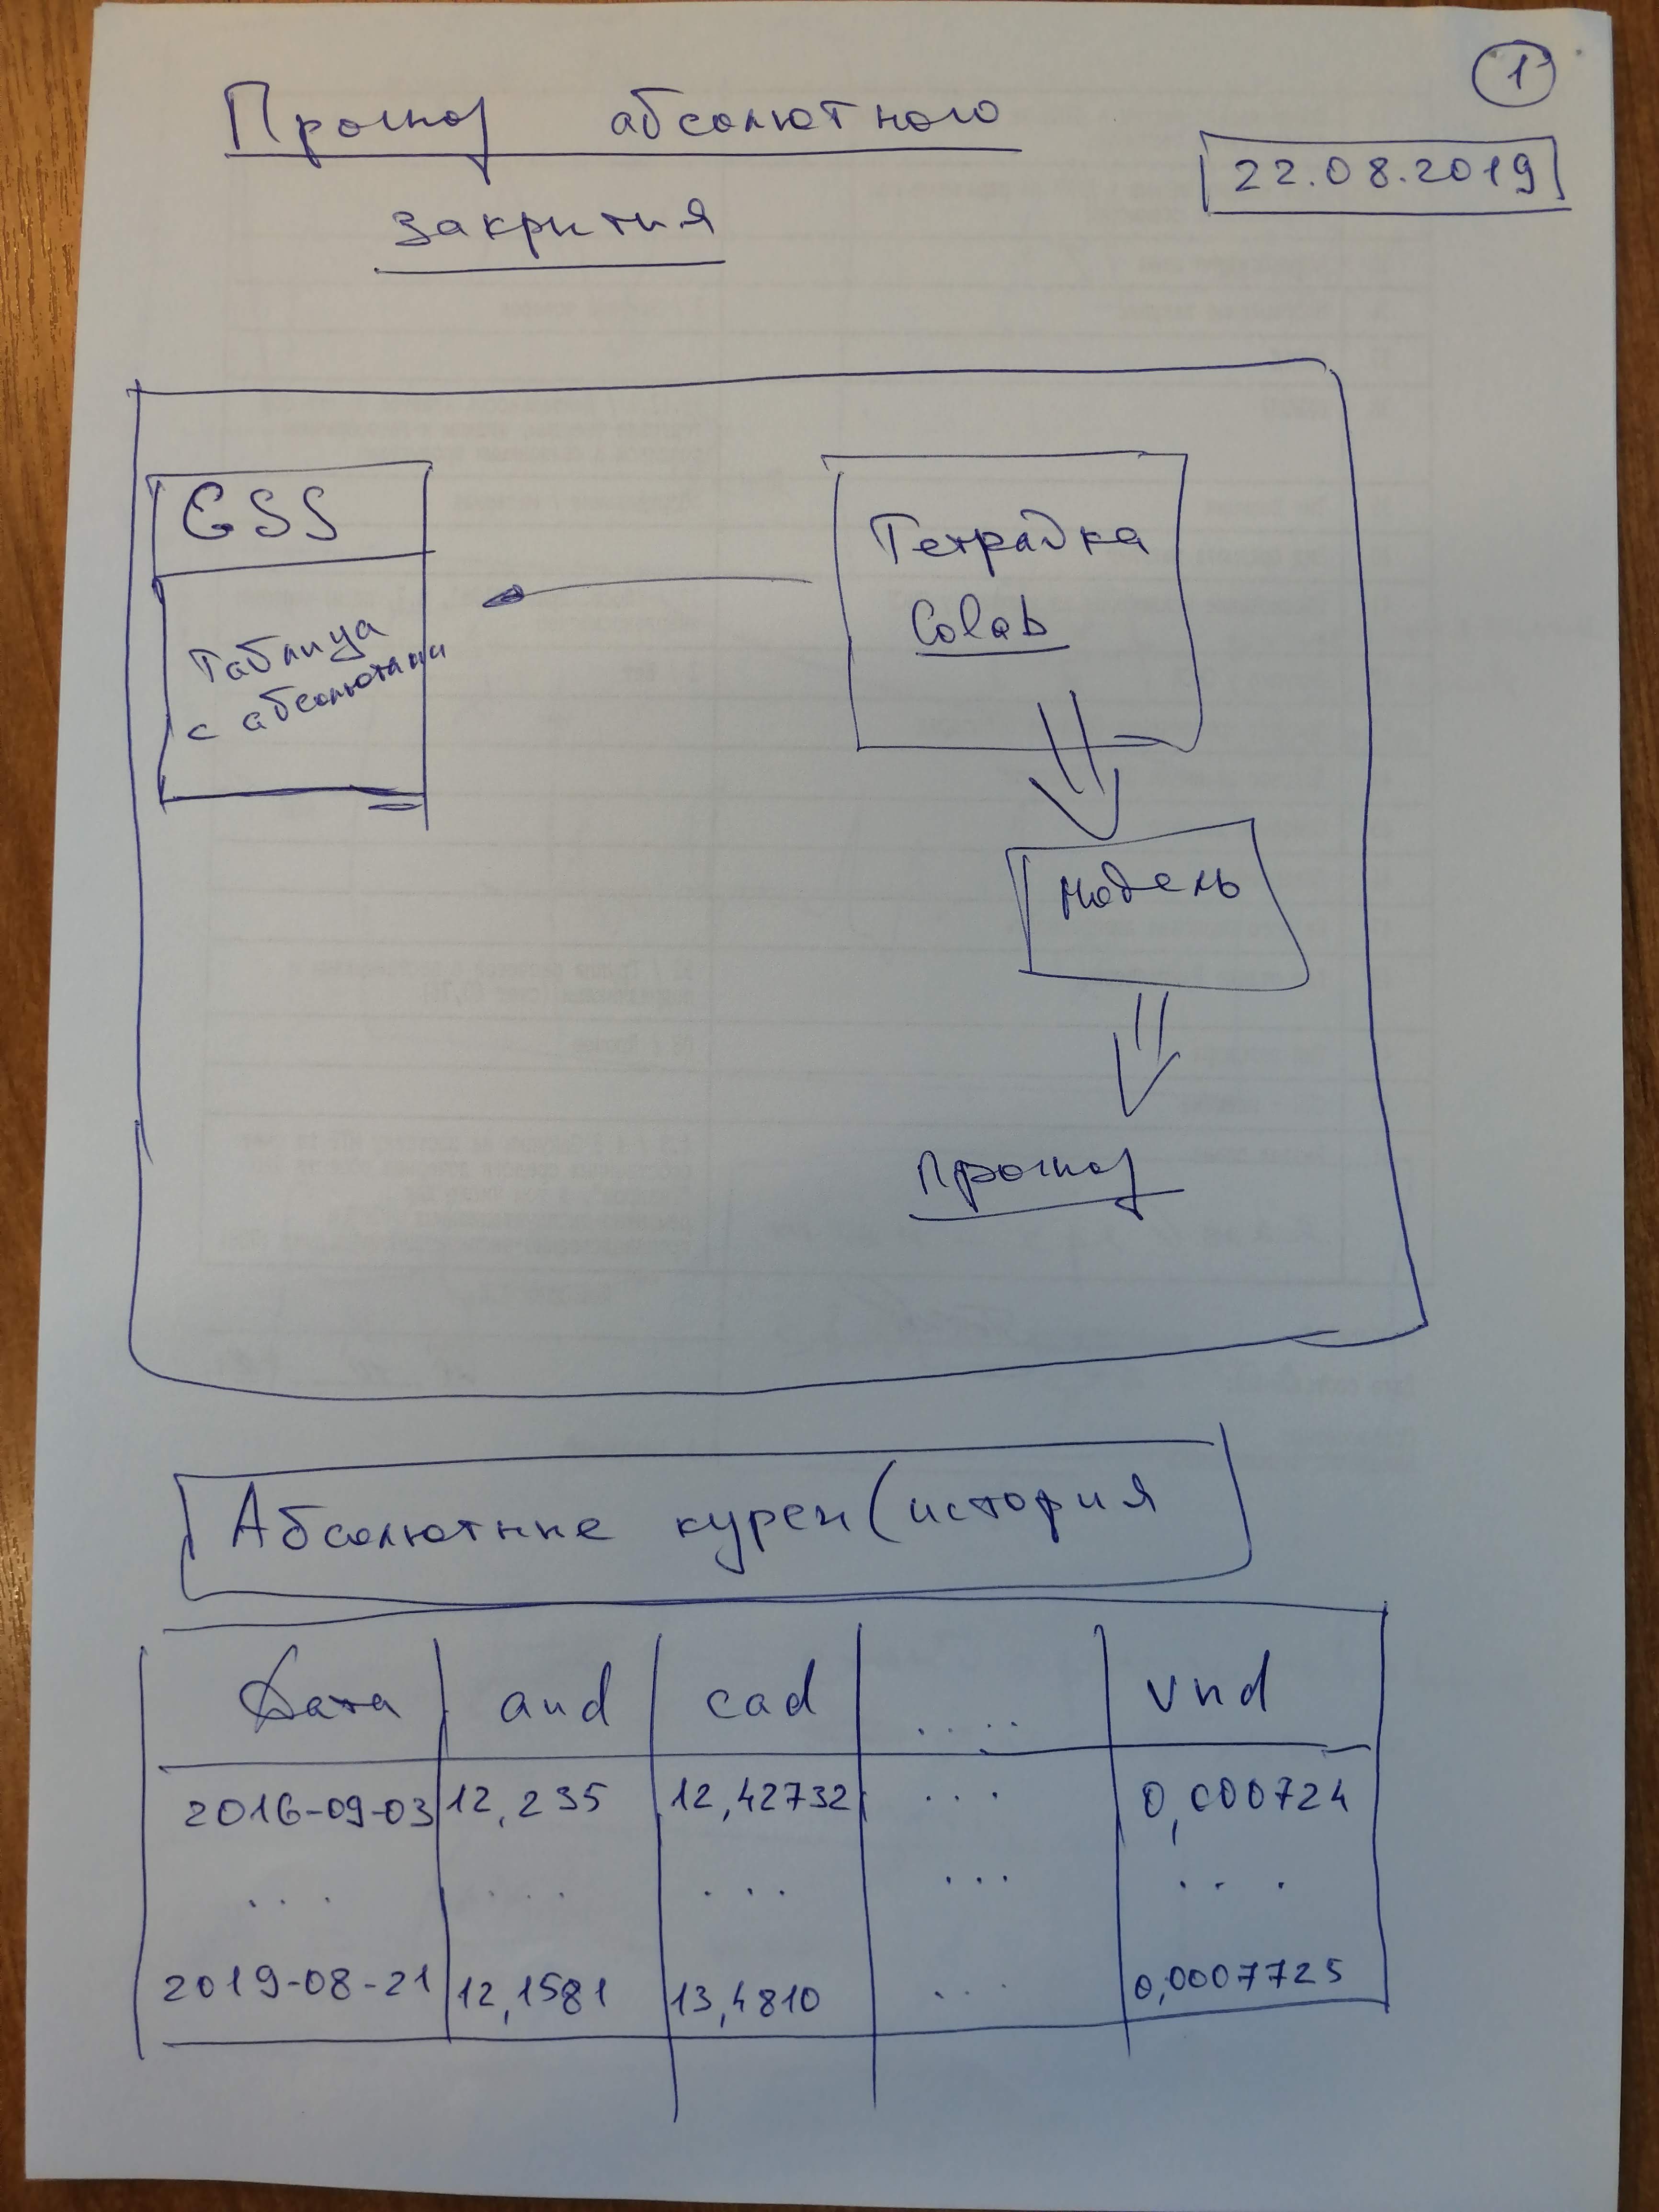 1
Прогноз абсолютного
22.08.2019
закрытия
GSS
Таблица
с абсолютами
Тетрадка
Colab
Модель
прогноз
Абсолютные курсы (история
Дата aud cad .... vnd
2016-09-03 12,235 12,42732 ... 0,000724
... ... ... ... ...
2019-08-21 12,1581 13,4810 ... 0,0007725